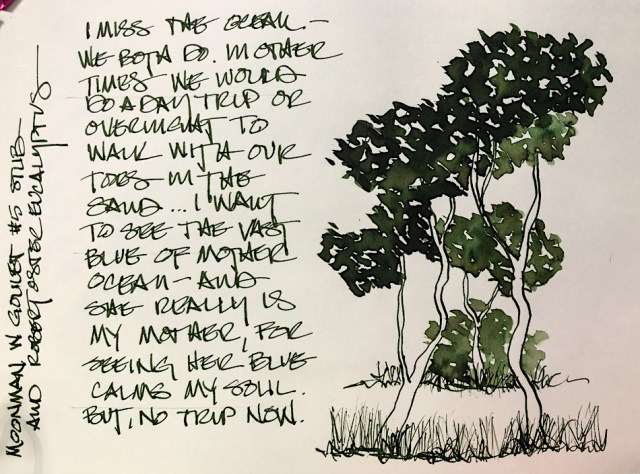 I MISS THE OCEAN.-
WE BOTH DO. IN OTHER
TIMES WE WOULD
DO A DAY TRIP OR
OVERNIGHT TO
WALK WITH OUR
TOES IN THE
SAND... I WANT
TO SEE THE VAST
BLUE OF MOTHER
OCEAN - AND
SHE REALLY IS
MY MOTHER, FOR
SEEING HER BLUE
CALMS MY SOUL.
BUT, NO TRIP NOW.
MOONMAN W GOULET #5 STUB -
AND ROBERT OSTER EUCALYPTUS